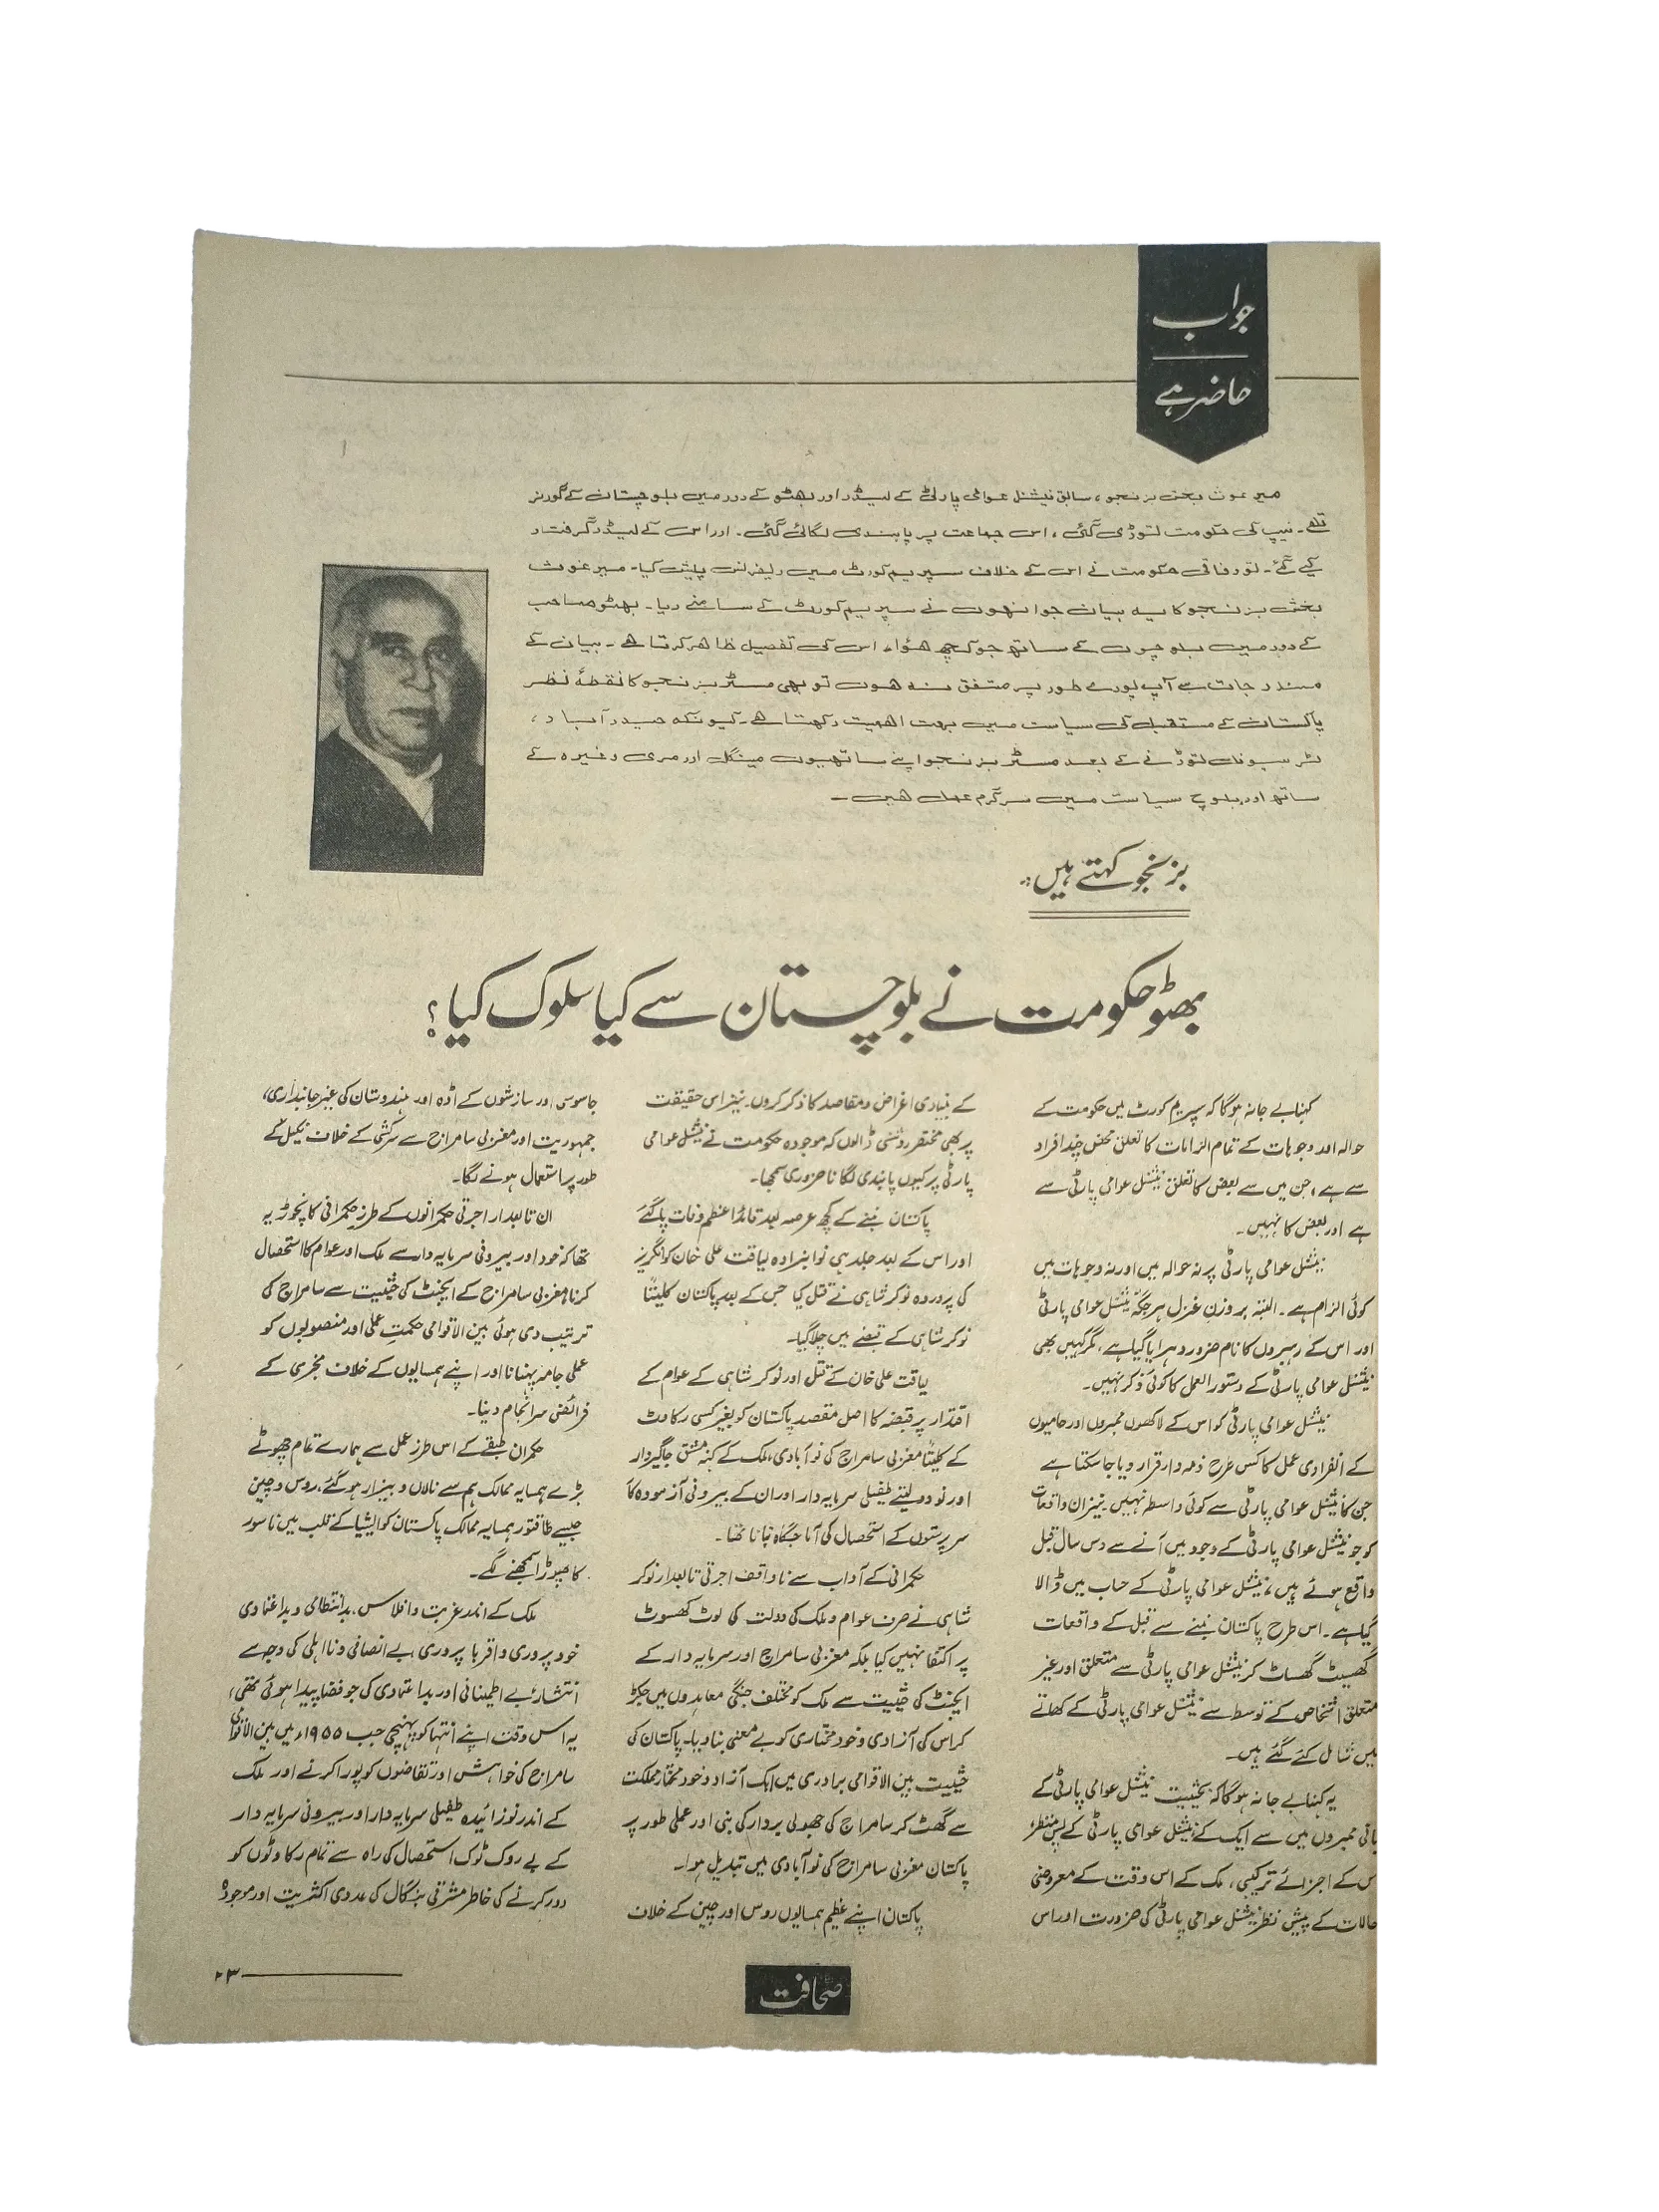 جواب
حاضر ہے
میر غوث بخش بزنجو، سابق نیشنل عوامی پارٹی کے لیڈر اور بھٹو کے دور میں بلوچستان کے گورنر
تھے۔ نیپ کی حکومت توڑی گئی، اس جماعت پر پابندی لگائی گئی۔ اور اس کے لیڈر گرفتار
کیے گئے۔ تو وفاقی حکومت نے اس کے خلاف سپریم کورٹ میں ریفرنس پیش کیا۔ میر غوث
بخش بزنجو کا یہ بیان جو انہوں نے سپریم کورٹ کے سامنے دیا۔ بھٹو صاحب
کے دور میں بلوچوں کے ساتھ جو کچھ ہوا، اس کی تفصیل ظاہر کرتا ہے۔ بیان کے
مندرجات سے آپ پورے طور پر متفق نہ ہوں تو بھی مسٹر بزنجو کا نقطۂ نظر
پاکستان کے مستقبل کی سیاست میں بہت اہمیت رکھتا ہے۔ کیونکہ حیدرآباد،
ٹربیونل توڑنے کے بعد مسٹر بزنجو اپنے ساتھیوں مینگل اور مری وغیرہ کے
ساتھ اور بلوچ سیاست میں سرگرم عمل ہیں۔
بزنجو کہتے ہیں:
بھٹو حکومت نے بلوچستان سے کیا سلوک کیا؟
کہنا بے جا نہ ہوگا کہ سپریم کورٹ میں حکومت کے
حوالہ اور وجوہات کے تمام الزامات کا تعلق محض چند افراد
سے ہے، جن میں سے بعض کا تعلق نیشنل عوامی پارٹی سے
ہے اور بعض کا نہیں۔
نیشنل عوامی پارٹی پر نہ حوالہ میں اور نہ وجوہات میں
کوئی الزام ہے۔ البتہ بر وزن غزل ہر جگہ نیشنل عوامی پارٹی
اور اس کے رہبروں کا نام ضرور دہرایا گیا ہے، مگر کہیں بھی
نیشنل عوامی پارٹی کے دستور العمل کا کوئی ذکر نہیں۔
نیشنل عوامی پارٹی کو اس کے لاکھوں ممبروں اور حامیوں
کے انفرادی عمل کا کس طرح ذمہ دار قرار دیا جا سکتا ہے
جن کا نیشنل عوامی پارٹی سے کوئی واسطہ نہیں۔ نیز ان واقعات
کو جو نیشنل عوامی پارٹی کے وجود میں آنے سے دس سال قبل
واقع ہوئے ہیں، نیشنل عوامی پارٹی کے حساب میں ڈالا
گیا ہے۔ اس طرح پاکستان بننے سے قبل کے واقعات
گھسیٹ گھساٹ کر نیشنل عوامی پارٹی سے متعلق اور غیر
متعلق اشخاص کے توسط سے نیشنل عوامی پارٹی کے کھاتے
میں شامل کئے گئے ہیں۔
یہ کہنا بے جا نہ ہوگا کہ بحیثیت نیشنل عوامی پارٹی کے
بانی ممبروں میں سے ایک کے نیشنل عوامی پارٹی کے پس منظر،
س کے اجزائے ترکیبی، ملک کے اس وقت کے معروضی
حالات کے پیش نظر نیشنل عوامی پارٹی کی ضرورت اور اس
کے بنیادی اغراض و مقاصد کا ذکر کروں۔ نیز اس حقیقت
پر بھی مختصر روشنی ڈالوں کہ موجودہ حکومت نے نیشنل عوامی
پارٹی پر کیوں پابندی لگانا ضروری سمجھا۔
پاکستان بننے کے کچھ عرصہ بعد قائد اعظم وفات پا گئے
اور اس کے بعد جلد ہی نوابزادہ لیاقت علی خان کو انگریز
کی پروردہ نوکر شاہی نے قتل کیا جس کے بعد پاکستان کلیتاً
نوکر شاہی کے قبضے میں چلا گیا۔
لیاقت علی خان کے قتل اور نوکر شاہی کے عوام کے
اقتدار پر قبضہ کا اصل مقصد پاکستان کو بغیر کسی رکاوٹ
کے کلیتاً مغربی سامراج کی نو آبادی، ملک کے کہنہ مشق جاگیردار
اور نو دولتئے طفیلی سرمایہ دار اور ان کے بیرونی آزمودہ کار
سرپرستوں کے استحصال کی آماجگاہ بنانا تھا۔
حکمرانی کے آداب سے ناواقف اجرتی تابعدار نوکر
شاہی نے صرف عوام و ملک کی دولت کی لوٹ کھسوٹ
پر اکتفا نہیں کیا بلکہ مغربی سامراج اور سرمایہ دار کے
ایجنٹ کی حیثیت سے ملک کو مختلف جنگی معاہدوں میں جکڑ
کر اس کی آزادی و خود مختاری کو بے معنی بنا دیا۔ پاکستان کی
حیثیت بین الاقوامی برادری میں ایک آزاد و خود مختار مملکت
سے گھٹ کر سامراج کی جھولی بردار کی بنی اور عملی طور پر
پاکستان مغربی سامراج کی نو آبادی میں تبدیل ہوا۔
پاکستان اپنے عظیم ہمسایوں روس اور چین کے خلاف
جاسوسی اور سازشوں کے اڈہ اور ہندوستان کی غیر جانبداری،
جمہوریت اور مغربی سامراج سے سرکشی کے خلاف نکیل کے
طور پر استعمال ہونے لگا۔
ان تابعدار اجرتی حکمرانوں کے طرز حکمرانی کا نچوڑ یہ
تھا کہ خود اور بیرونی سرمایہ دار سے ملک اور عوام کا استحصال
کرنا، مغربی سامراج کے ایجنٹ کی حیثیت سے سامراج کی
ترتیب دی ہوئی بین الاقوامی حکمت عملی اور منصوبوں کو
عملی جامہ پہنانا اور اپنے ہمسایوں کے خلاف مخبری کے
فرائض سرانجام دینا۔
حکمران طبقے کے اس طرز عمل سے ہمارے تمام چھوٹے
بڑے ہمسایہ ممالک ہم سے نالاں و بیزار ہو گئے، روس و چین
جیسے طاقتور ہمسایہ ممالک پاکستان کو ایشیا کے قلب میں ناسور
کا پھوڑا سمجھنے لگے۔
ملک کے اندر غربت و افلاس، بد انتظامی و بد اعتمادی
خود پروری و اقربا پروری، بے انصافی و نااہلی کی وجہ سے
انتشار، بے اطمینانی اور بد اعتمادی کی جو فضا پیدا ہوئی تھی،
یہ اس وقت اپنے انتہا کو پہنچی جب ۱۹۵۵ء میں بین الاقوامی
سامراج کی خواہش اور تقاضوں کو پورا کرنے اور ملک
کے اندر نوزائیدہ طفیلی سرمایہ دار اور بیرونی سرمایہ دار
کے بے روک ٹوک استحصال کی راہ سے تمام رکاوٹوں کو
دور کرنے کی خاطر مشرقی بنگال کی عددی اکثریت اور موجودہ
صحافت
۲۳